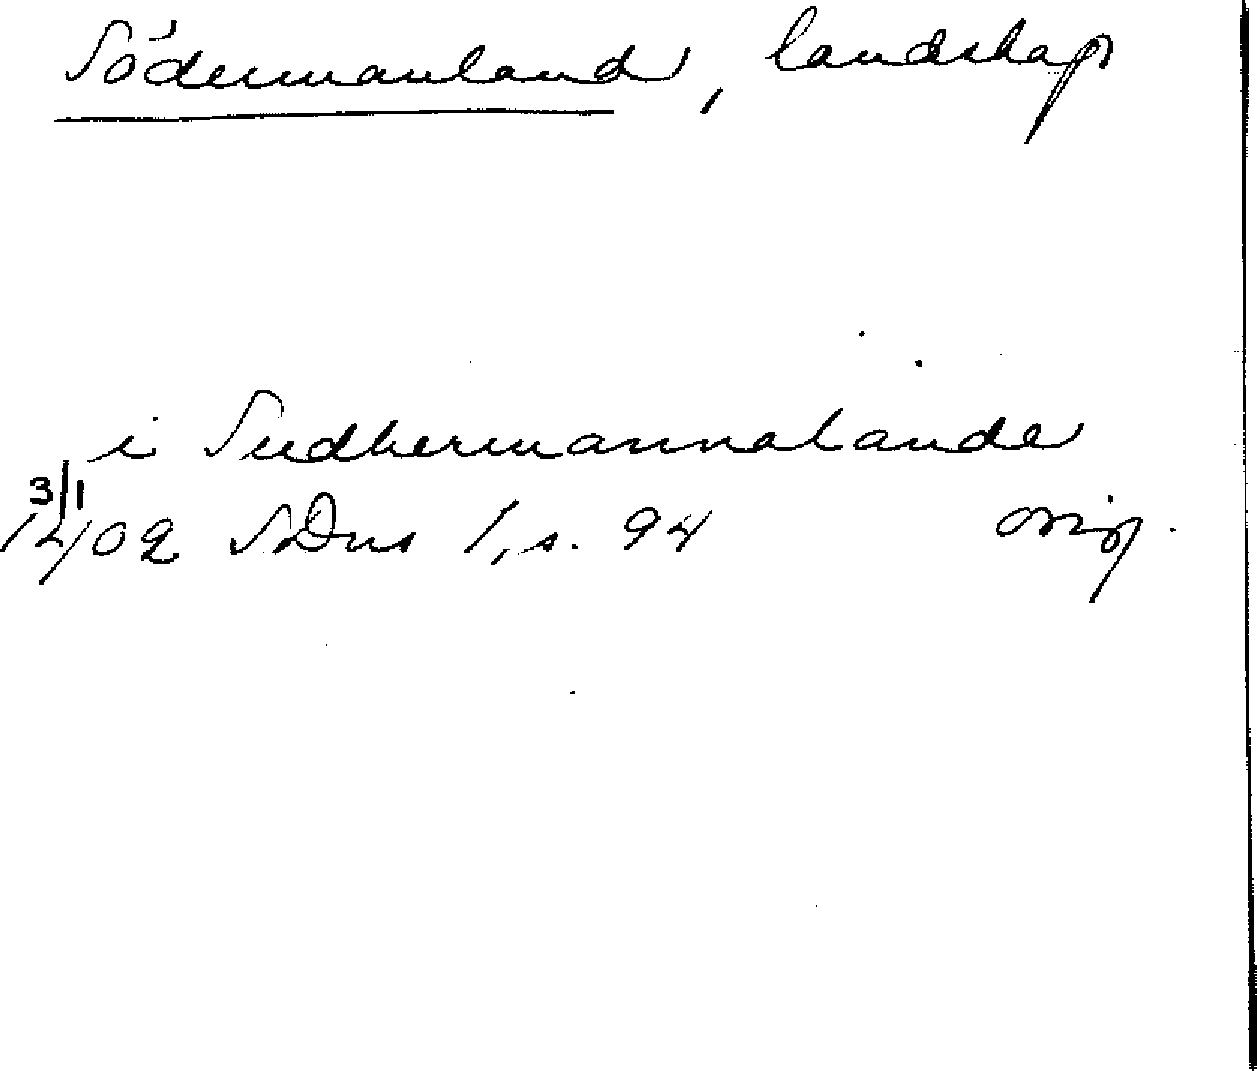 Södermanland, landskap
i Sudhermannalande
3/1
1402 SDns 1, s. 94 orig.